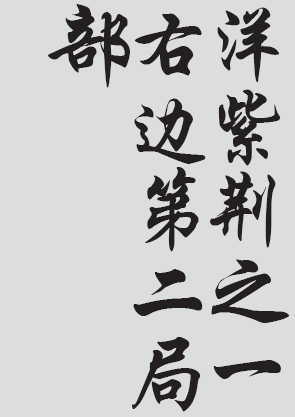 洋紫荆之一
右边第二局
部